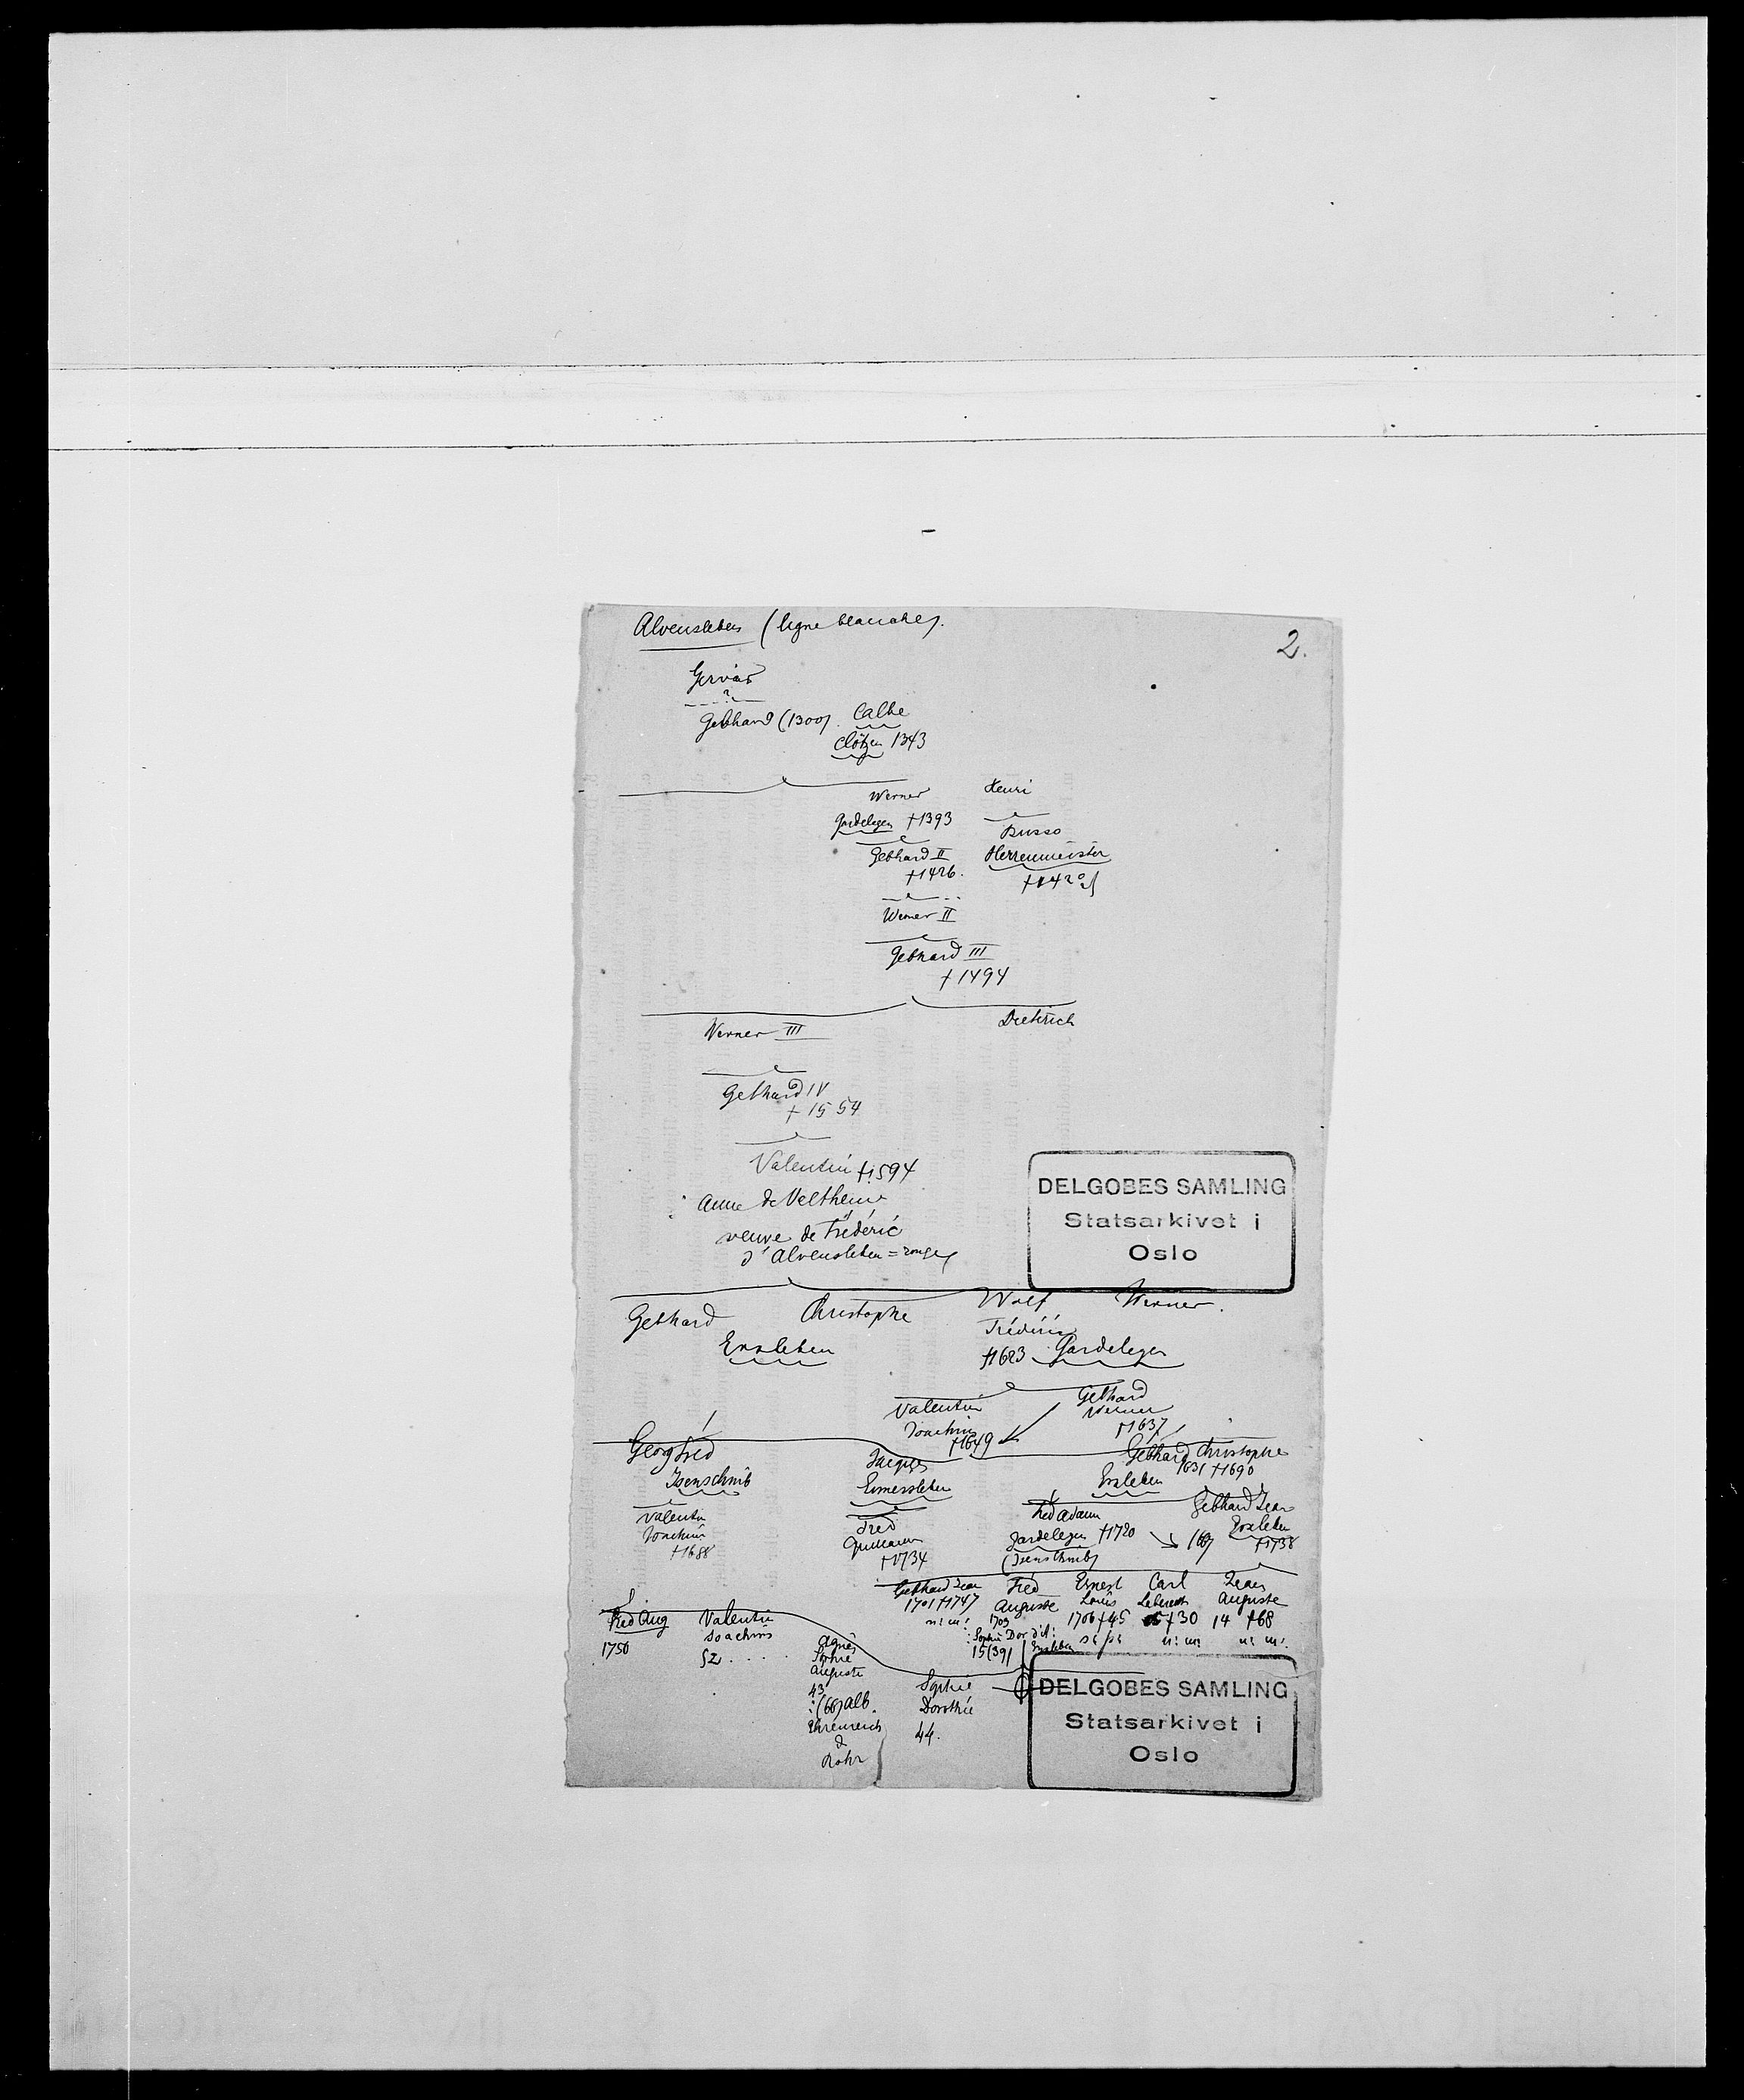 Alvensleben (ligne blanche).
2.
Gervais
?
Gebhard (1300) Calbe
Clötzen 1343
Werner Henri
Gardelegen †1393
Busso
Gebhard II Herrenmeister
†1426. †1420
Werner II
Gebhard III
†1494
Werner III Dietrich
Gebhard IV
†1554
Valentin †1594
Anne de Veltheim
veuve de Frédéric
d'Alvensleben = rouge
DELGOBES SAMLING
Statsarkivet i
Oslo
Gebhard Christophe Wolf Werner.
Frédéric
Erxleben †1623 Gardelegen
Valentin Gebhard
Joachim Werner
†1649 †1637
Georg Fréd Jacques Gebhard Christophe
1631 †1690
Isenschnib Eimersleben Erxleben
Valentin Fréd Fred Adam Gebhard Jean
Joachim Guillaume Gardelegen †1720 Erxleben
†1688 †1734 (Isenschnib) †1738
Gebhard Jean Fréd Ernest Carl Jean
1701 †1747 Auguste Louis Lebrecht Auguste
n: m: 1703 1706 †45 †30 14 †68
: Sophie Dor d'A: n: m: n: m:
15 (39) Erxleben
Fred Aug Valentin
1750 Joachim
52 . . . .
Agnès
Sophie
Auguste
43
: (66) Alb.
Ehrenreich
d
Rohr
Sophie
Dorothée
44.
DELGOBES SAMLING
Statsarkivet i
Oslo